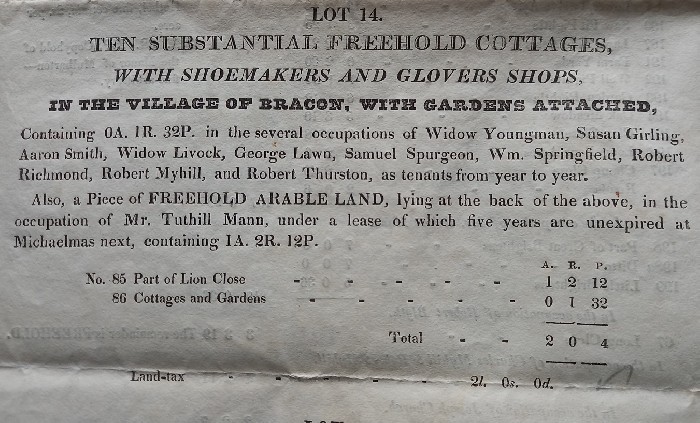 LOT 14.
TEN SUBSTANTIAL FREEHOLD COTTAGES,
WITH SHOEMAKERS AND GLOVERS SHOPS,
IN THE VILLAGE OF BRACON, WITH GARDENS ATTACHED,
Containing 0A. 1R. 32P. in the several occupations of Widow Youngman, Susan Girling,
Aaron Smith, Widow Livock, George Lawn, Samuel Spurgeon, Wm. Springfield, Robert
Richmond, Robert Myhill, and Robert Thurston, as tenants from year to year.
Also, a Piece of FREEHOLD ARABLE LAND, lying at the back of the above, in the
occupation of Mr. Tuthill Mann, under a lease of which five years are unexpired at
Michaelmas next, containing 1A. 2R. 12P.
A. R. P.
No. 85 Part of Lion Close - - - - - 1 2 12
86 Cottages and Gardens - - - - - 0 1 32
Total - - 2 0 4
Land-tax - - - - - - 2l. 0s. 0d.